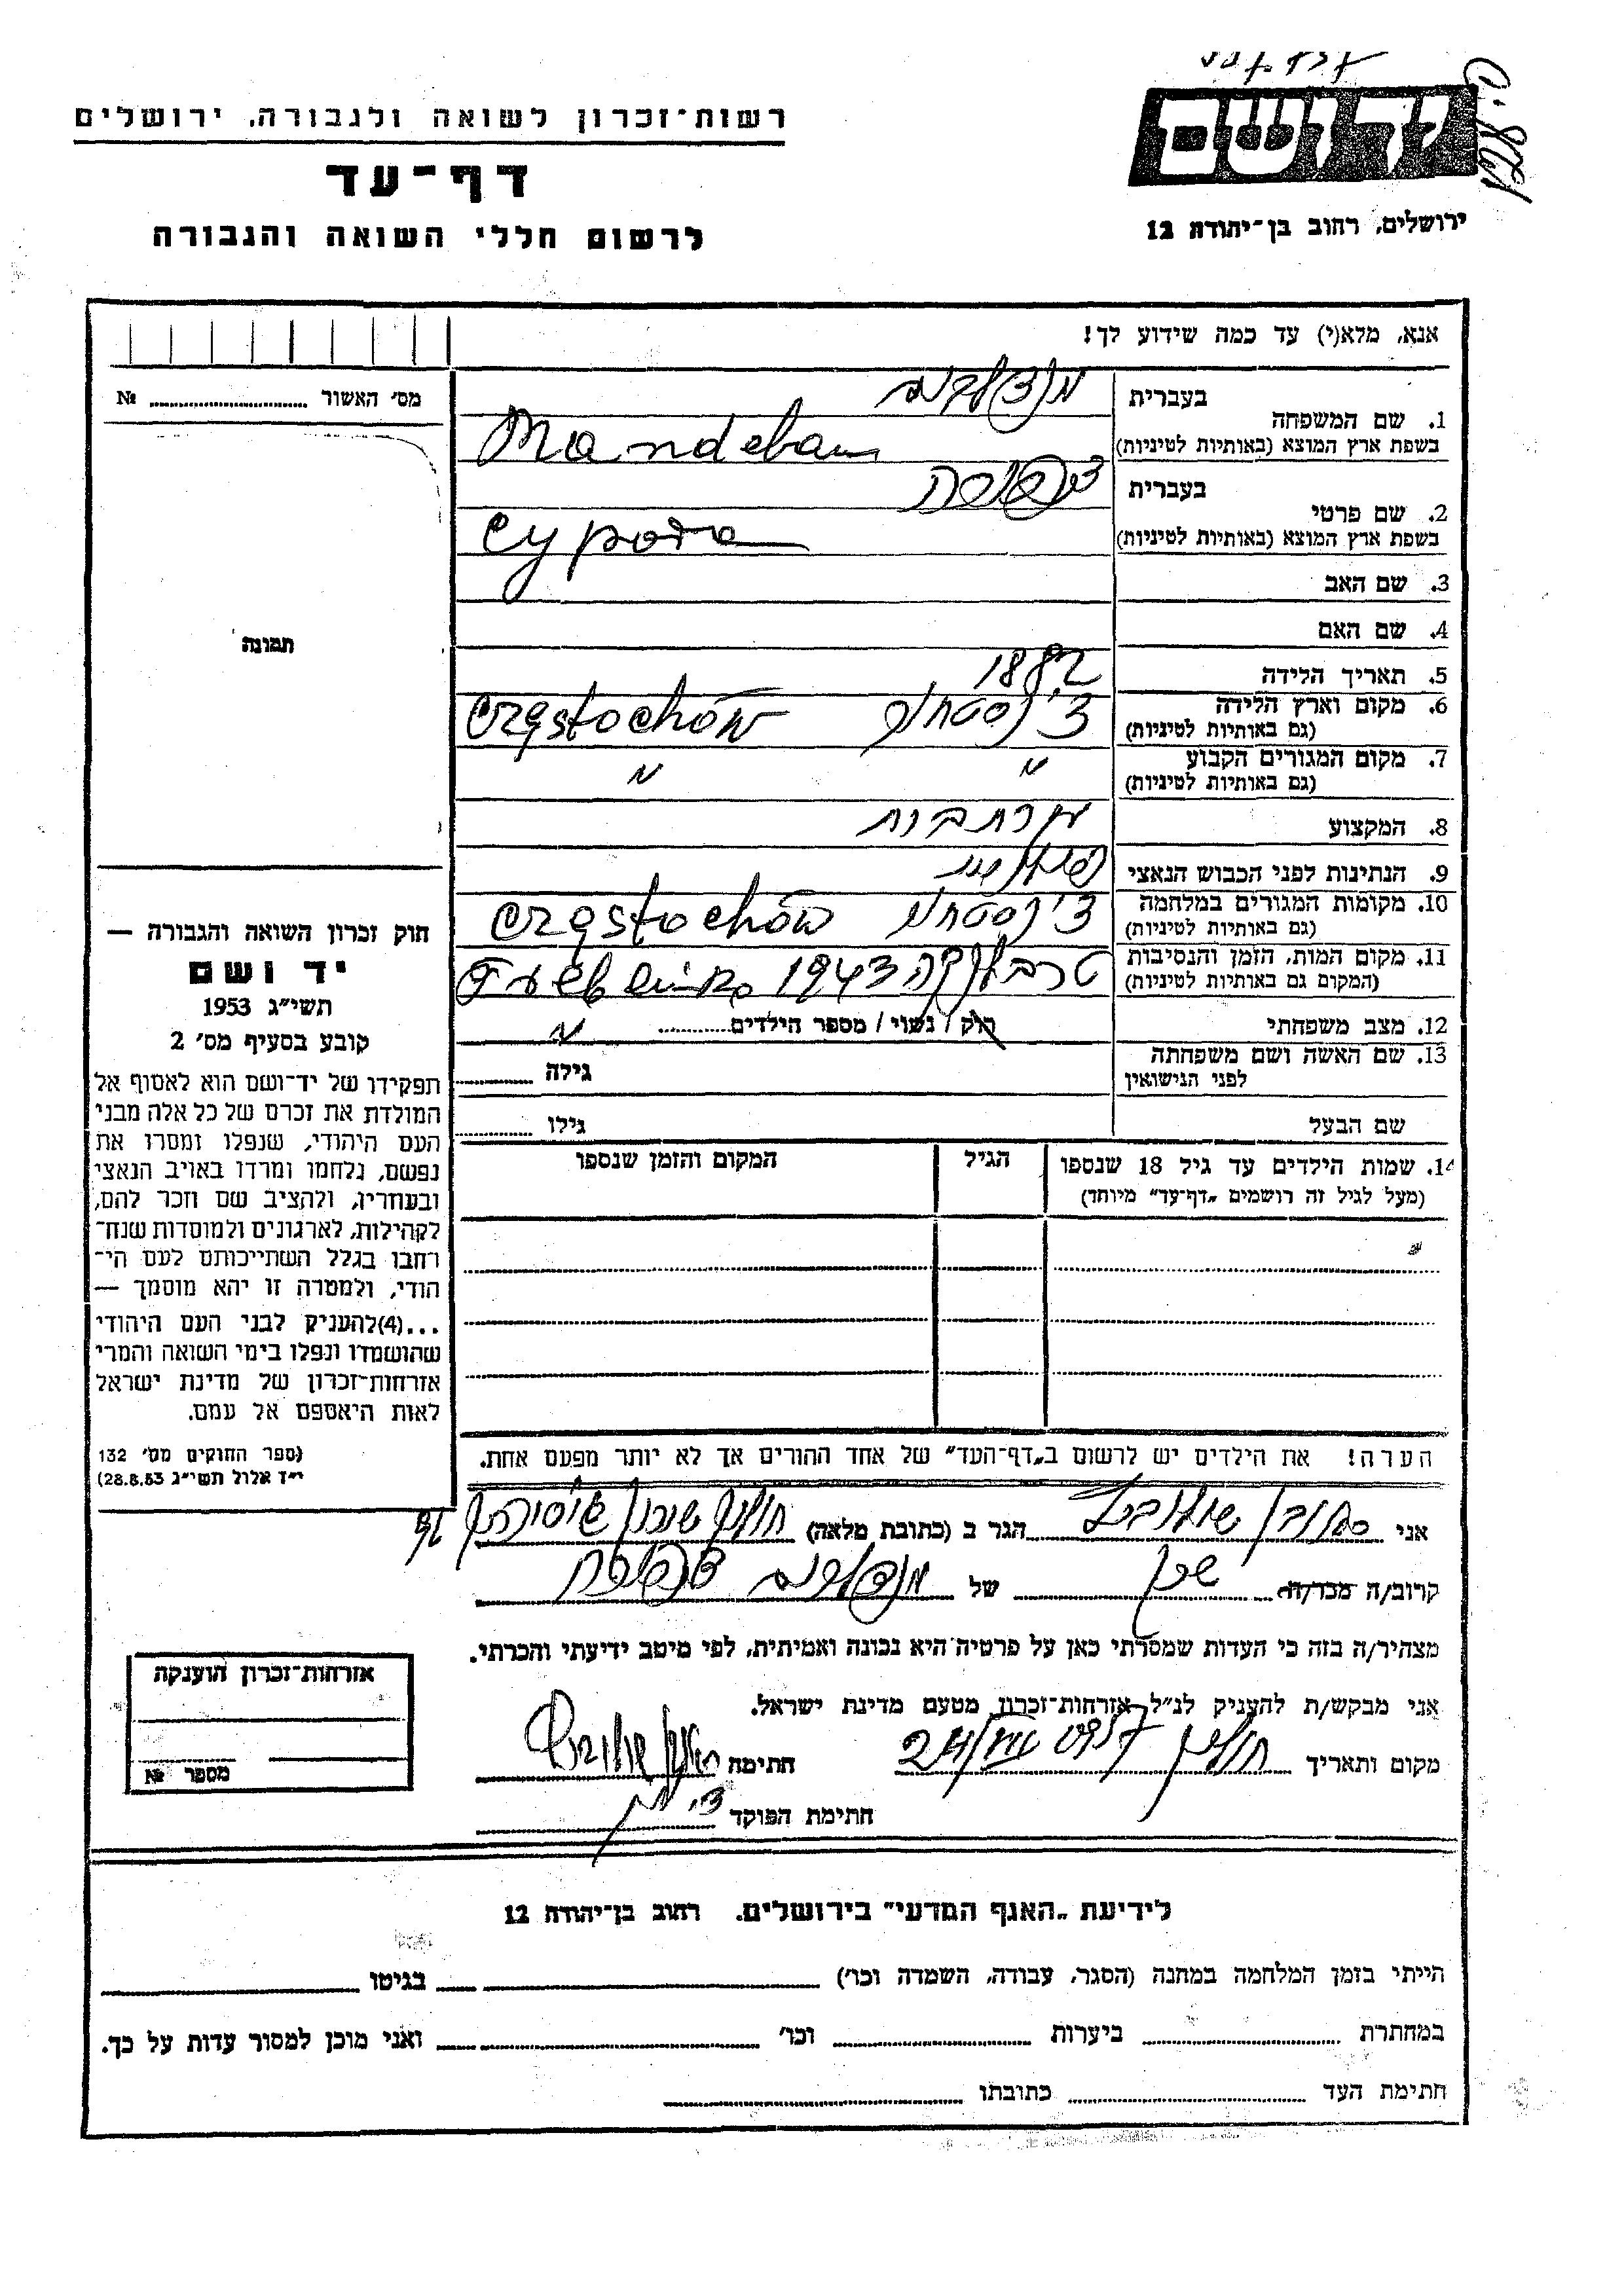 יד ושם
ירושלים, רחוב בן־יהודה 12
רשות־זכרון לשואה ולגבורה, ירושלים
דף־עד
לרשום חללי השואה והגבורה
אנא, מלא(י) עד כמה שידוע לך!
1. שם המשפחה
בעברית
בשפת ארץ המוצא (באותיות לטיניות)
Mandebaum
2. שם פרטי
בעברית ציפורה
בשפת ארץ המוצא (באותיות לטיניות)
Cypora
3. שם האב
4. שם האם
5. תאריך הלידה 1882
6. מקום וארץ הלידה
(גם באותיות לטיניות)
צ'נסטחוב Częstochów
7. מקום המגורים הקבוע
(גם באותיות לטיניות)
" "
8. המקצוע עקרת בית
9. הנתינות לפני הכבוש הנאצי פולנית
10. מקומות המגורים במלחמה
(גם באותיות לטיניות)
צ'נסטחוב Częstochów
11. מקום המות, הזמן והנסיבות
(המקום גם באותיות לטיניות)
טרבלינקה 1943
12. מצב משפחתי רוק / נשוי / מספר הילדים
13. שם האשה ושם משפחתה
לפני הנישואין
גילה
שם הבעל גילו
14. שמות הילדים עד גיל 18 שנספו
(מעל לגיל זה רושמים „דף־עד” מיוחד)
הגיל
המקום והזמן שנספו
הערה! את הילדים יש לרשום ב„דף־העד” של אחד ההורים אך לא יותר מפעם אחת.
מס' האשור №
תמונה
חוק זכרון השואה והגבורה —
יד ושם
תשי״ג 1953
קובע בסעיף מס' 2
תפקידו של יד־ושם הוא לאסוף אל
המולדת את זכרם של כל אלה מבני
העם היהודי, שנפלו ומסרו את
נפשם, נלחמו ומרדו באויב הנאצי
ובעוזריו, ולהציב שם וזכר להם,
לקהילות, לארגונים ולמוסדות שנח־
רחבו בגלל השתייכותם לעם הי־
הודי, ולמטרה זו יהא מוסמך —
...(4)להעניק לבני העם היהודי
שהושמדו ונפלו בימי השואה והמרי
אזרחות־זכרון של מדינת ישראל
לאות היאספם אל עמם.
(ספר החוקים מס' 132
י״ז אלול תשי״ג 28.8.53)
אני הגר ב (כתובת מלאה) חולון שכון
קרוב/ה מכר/ה שכן של מנדלבוים ציפורה
מצהיר/ה בזה כי העדות שמסרתי כאן על פרטיה היא נכונה ואמיתית, לפי מיטב ידיעתי והכרתי.
אני מבקש/ת להעניק לנ״ל אזרחות־זכרון מטעם מדינת ישראל.
מקום ותאריך חולון חתימה
חתימת הפוקד
אזרחות־זכרון הוענקה
מספר №
לידיעת „האגף המדעי” בירושלים. רחוב בן־יהודה 12
הייתי בזמן המלחמה במחנה (הסגר, עבודה, השמדה וכו') בגיטו
במחתרת ביערות וכו' ואני מוכן למסור עדות על כך.
חתימת העד כתובתו